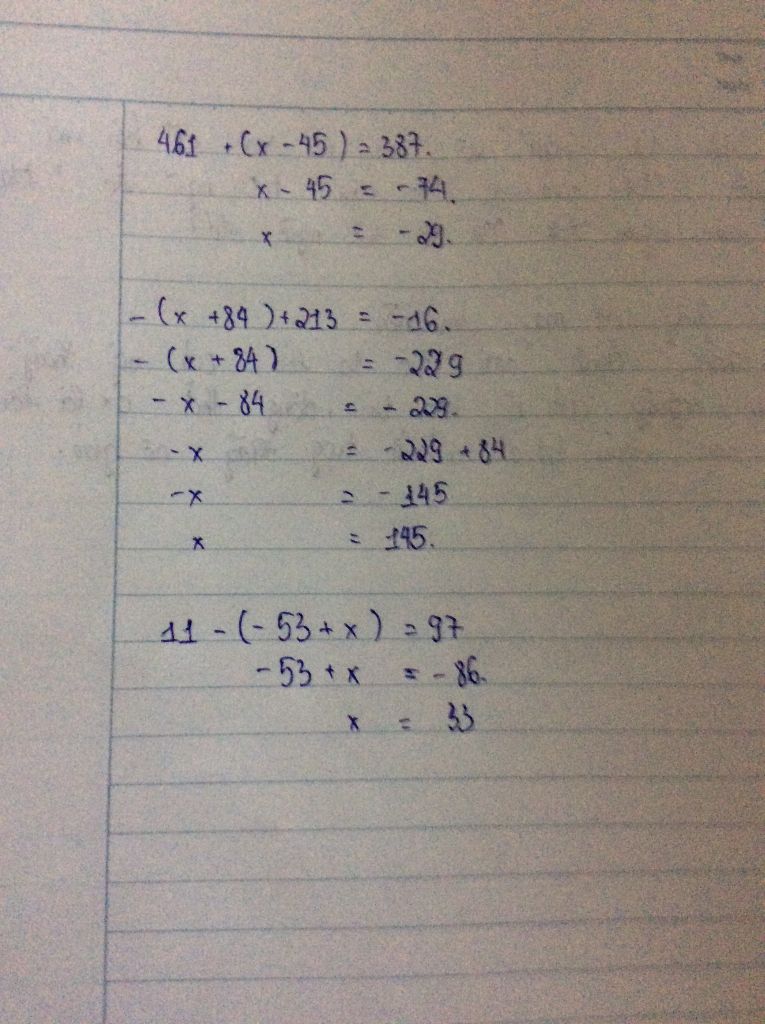 461 + (x - 45) = 387.
x - 45 = -74.
x = -29.
-(x + 84) + 213 = -16.
-(x + 84) = -229
-x - 84 = -229.
-x = -229 + 84
-x = -145
x = 145.
11 - (-53 + x) = 97
-53 + x = -86.
x = 33